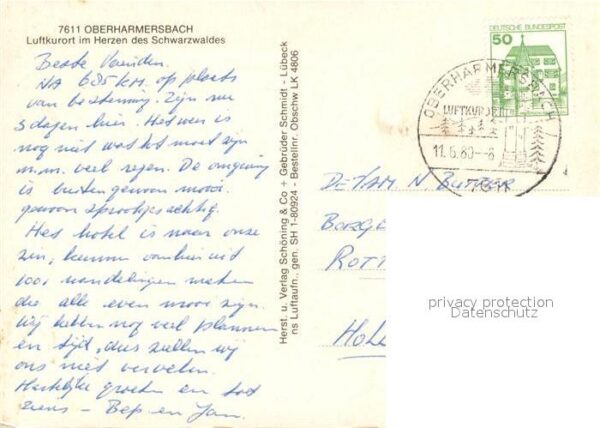 7611 OBERHARMERSBACH
Luftkurort im Herzen des Schwarzwaldes
Beste Vrienden.
NA 685 KM. op plaats
van bestemming. Zijn nu
3 dagen hier. Het weer is
nog niet wat het moet zijn
m.m. veel regen. De omgeving
is buitengewoon mooi.
gewoon sprookjesachtig.
Het hotel is naar onze
zin, kunnen van hier uit
100 wandelingen maken
die alle even mooi zijn.
Wij hebben nog veel plannen
en tijd, dus zullen wij
ons niet vervelen.
Hartelijke groeten en tot
ziens – Bep en Jan.
Herst. u. Verlag Schöning & Co + Gebrüder Schmidt - Lübeck
ns Luftaufn., gen. SH 1-80924 - Bestellnr. Obschw LK 4806
DEUTSCHE BUNDESPOST
50
OBERHARMERSBACH
LUFTKURORT
11.6.80-8
7611
DE FAM N
BORGE
ROTT
HOL
privacy protection
Datenschutz